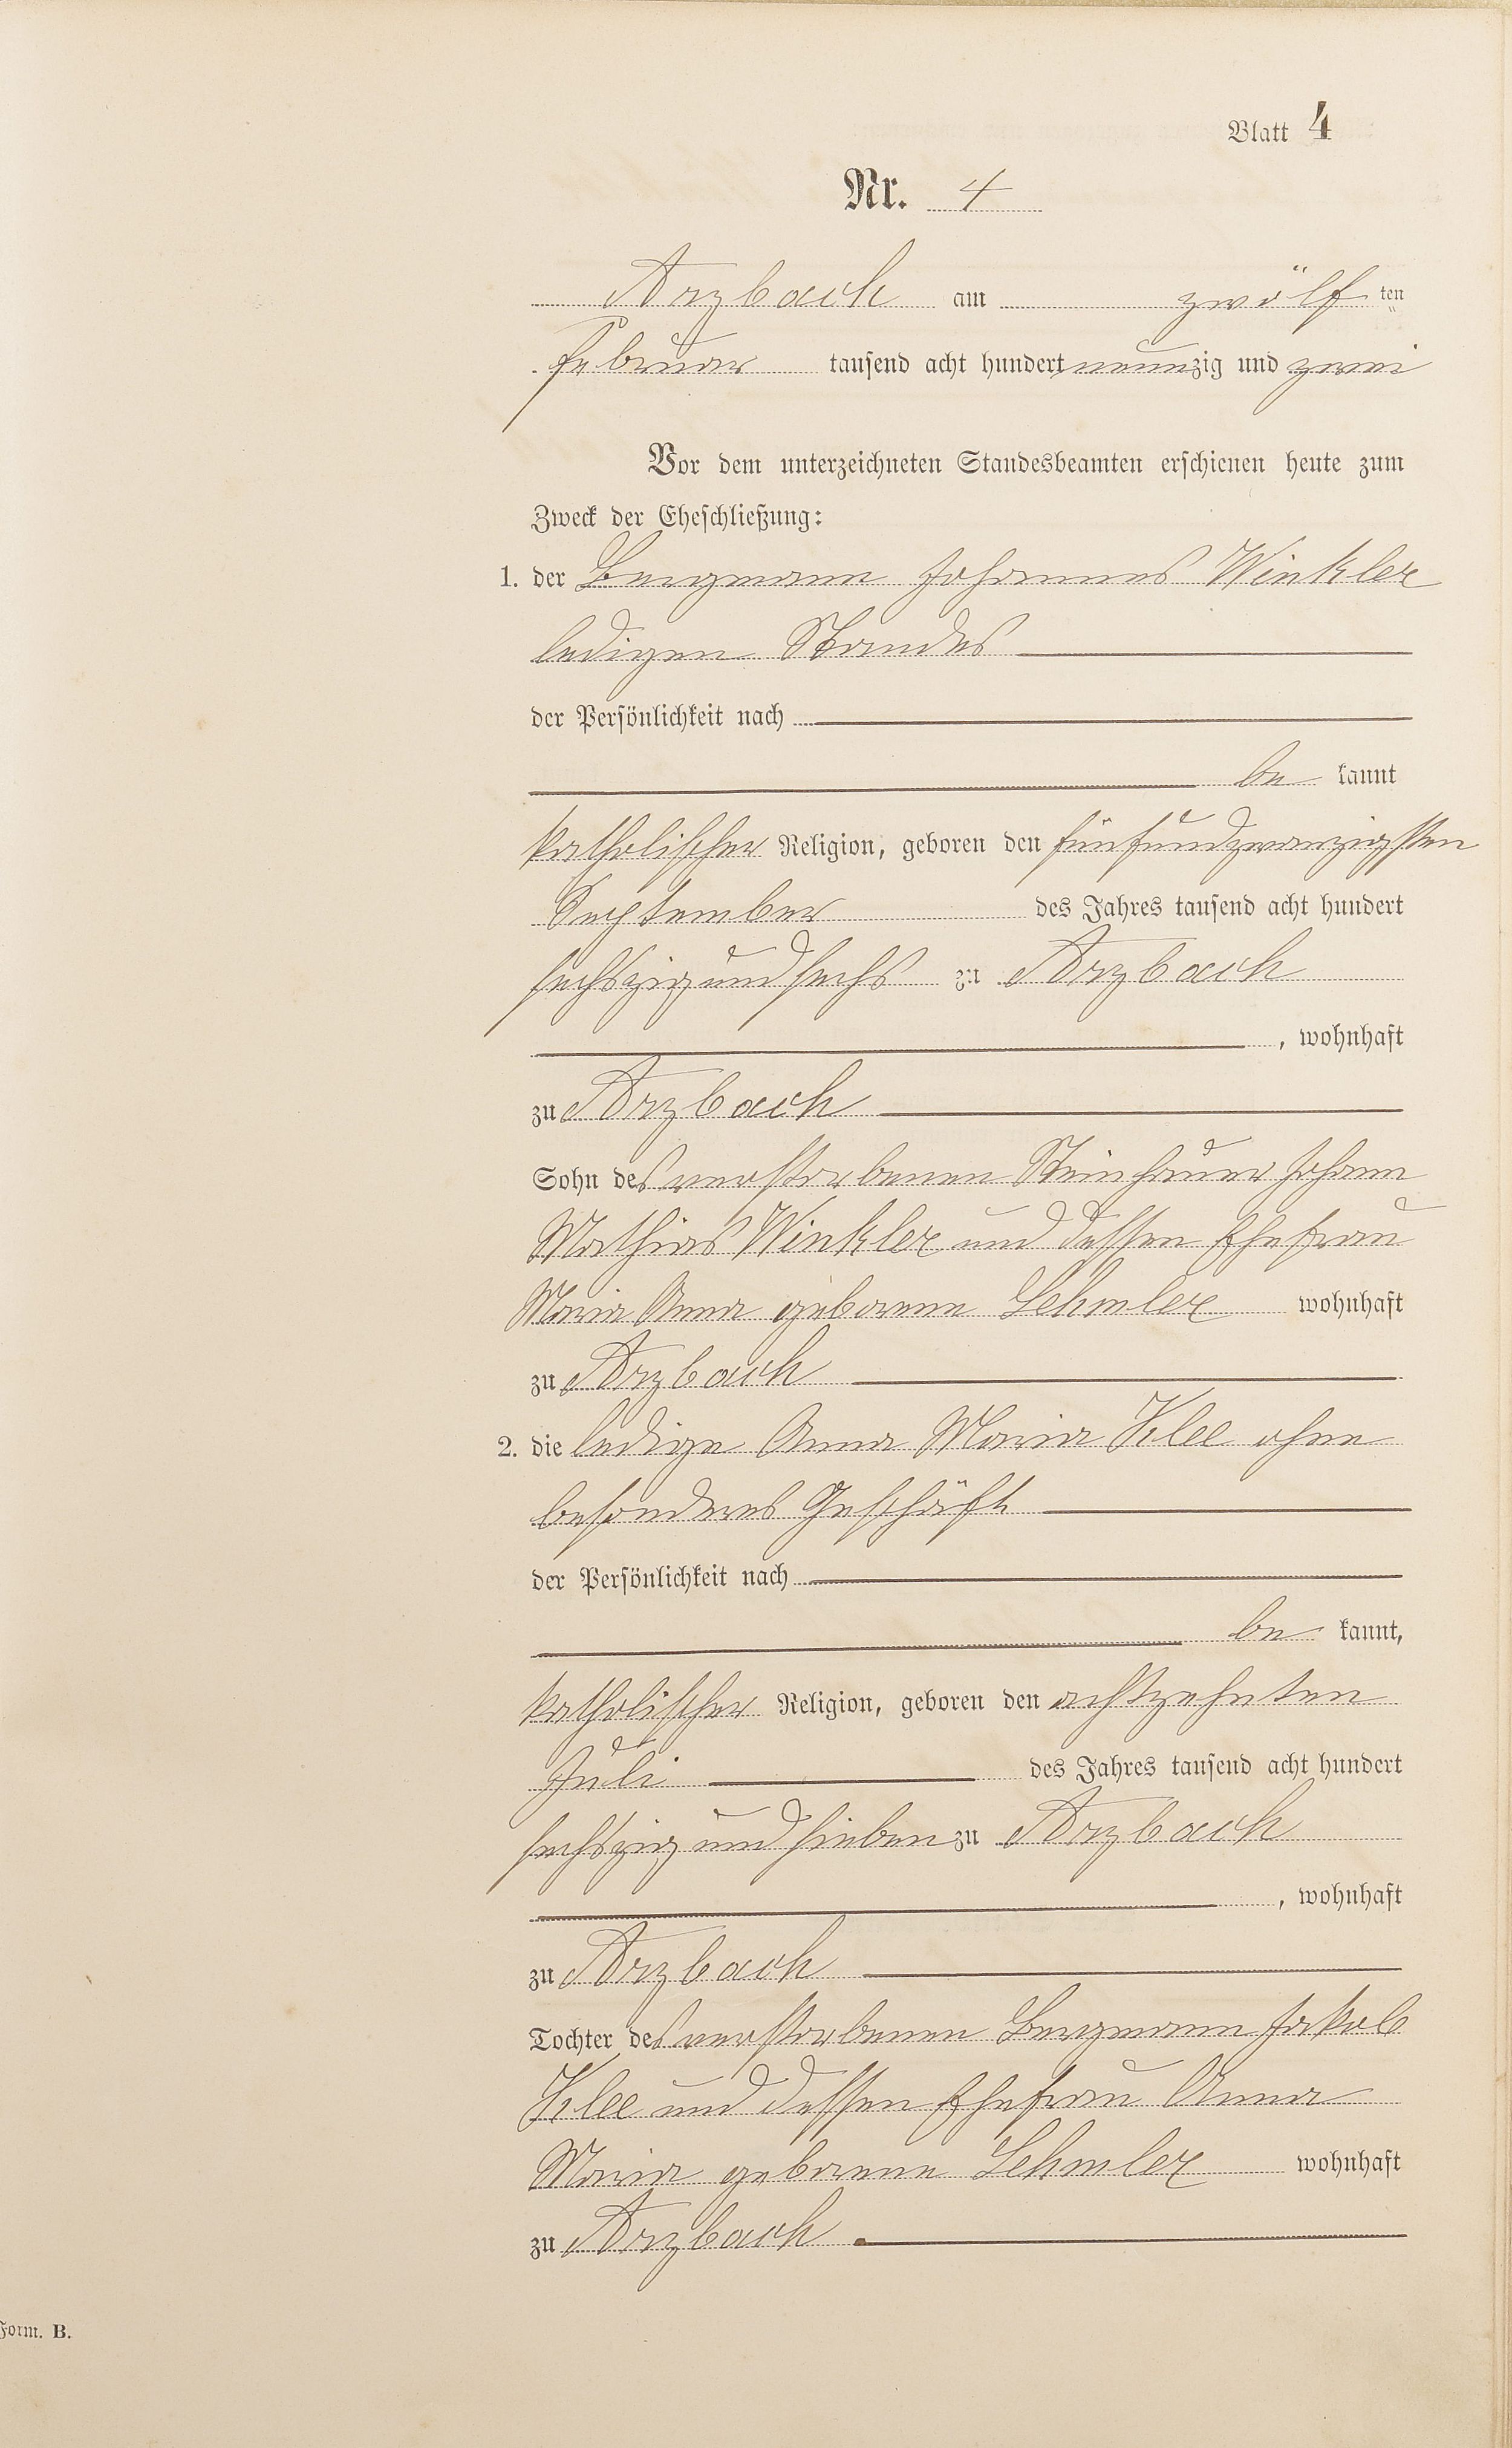 Blatt 4
Nr. 4
Arzbach am zwölf ten
Februar tausend acht hundert neunzig und zwei
Vor dem unterzeichneten Standesbeamten erschienen heute zum
Zweck der Eheschließung:
1. der Bergmann Johannes Winkler
ledigen Standes
der Persönlichkeit nach
be kannt
katholischer Religion, geboren den fünfundzwanzigsten
September des Jahres tausend acht hundert
sechszig und sechs zu Arzbach
, wohnhaft
zu Arzbach
Sohn des verstorbenen Steinhauer Johann
Mathias Winkler und dessen Ehefrau
Maria Anna geborene Lehmler wohnhaft
zu Arzbach
2. die ledige Anna Maria Klee ohne
besonderes Geschäft
der Persönlichkeit nach
be kannt,
katholischer Religion, geboren den achtzehnten
Juli des Jahres tausend acht hundert
sechszig und sieben zu Arzbach
, wohnhaft
zu Arzbach
Tochter des verstorbenen Bergmann Jakob
Klee und dessen Ehefrau Anna
Maria geborene Lehmler wohnhaft
zu Arzbach.
Form. B.